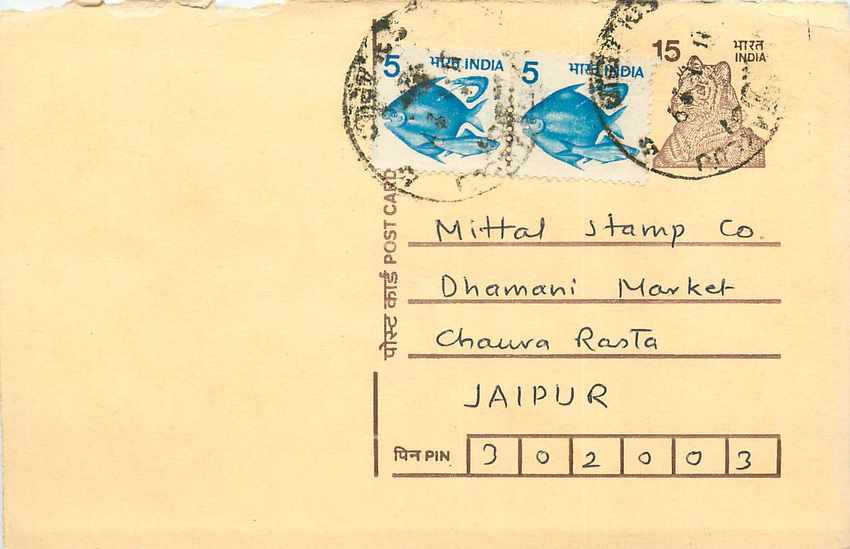 5 भारत INDIA
5 भारत INDIA
15 भारत
INDIA
पोस्ट कार्ड POST CARD
Mittal Stamp Co.
Dhamani Market
Chaura Rasta
JAIPUR
पिन PIN 3 0 2 0 0 3